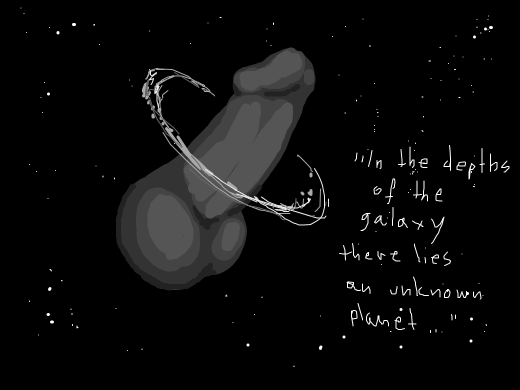 "In the depths
of the
galaxy
there lies
an unknown
planet..."